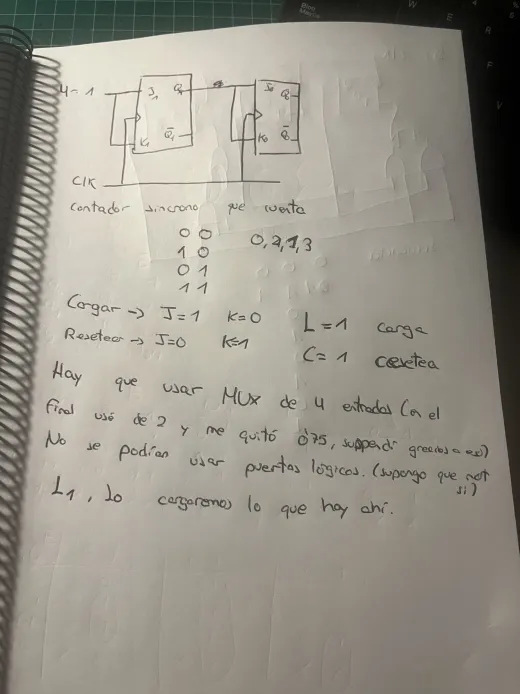 4- 1 J1 Q1 J0 Q0
K1 Q̅1 K0 Q̅0
CLK
Contador sincrono que cuenta
0 0 0,2,1,3
1 0
0 1
1 1
Cargar -> J=1 K=0 L=1 carga
Resetear -> J=0 K=1 C=1 resetea
Hay que usar MUX de 4 entradas (en el
final usó de 2 y me quitó 0'75, suspendí gracias a eso)
No se podían usar puertas lógicas. (supongo que not
si)
L1, L0 cargaremos lo que hay ahí.
W
E
R
F
V